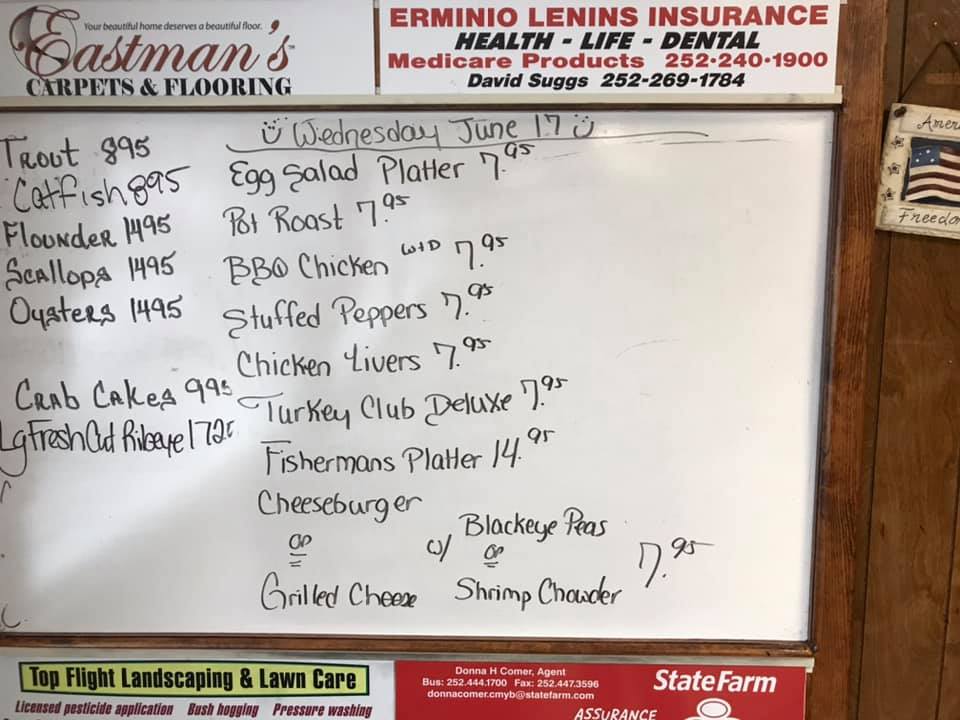 Your beautiful home deserves a beautiful floor.
Eastman's
CARPETS & FLOORING
ERMINIO LENINS INSURANCE
HEALTH - LIFE - DENTAL
Medicare Products 252·240·1900
David Suggs 252-269-1784
Wednesday June 17
Trout 895
Catfish 895
Flounder 1495
Scallops 1495
Oysters 1495
Crab Cakes 995
Lg Fresh Cut Ribeye
Egg Salad Platter 7.95
Pot Roast 7.95
BBQ Chicken 7.95
Stuffed Peppers 7.95
Chicken Livers 7.95
Turkey Club Deluxe 7.95
Fishermans Platter 14.95
Cheeseburger
or
Grilled Cheese
w/
Blackeye Peas
or
Shrimp Chowder
7.95
Freedo
Top Flight Landscaping & Lawn Care
Licensed pesticide application Bush hogging Pressure washing
Donna H Comer, Agent
Bus: 252.444.1700 Fax: 252.447.3596
donnacomer.cmyb@statefarm.com
State Farm
ASSURANCE